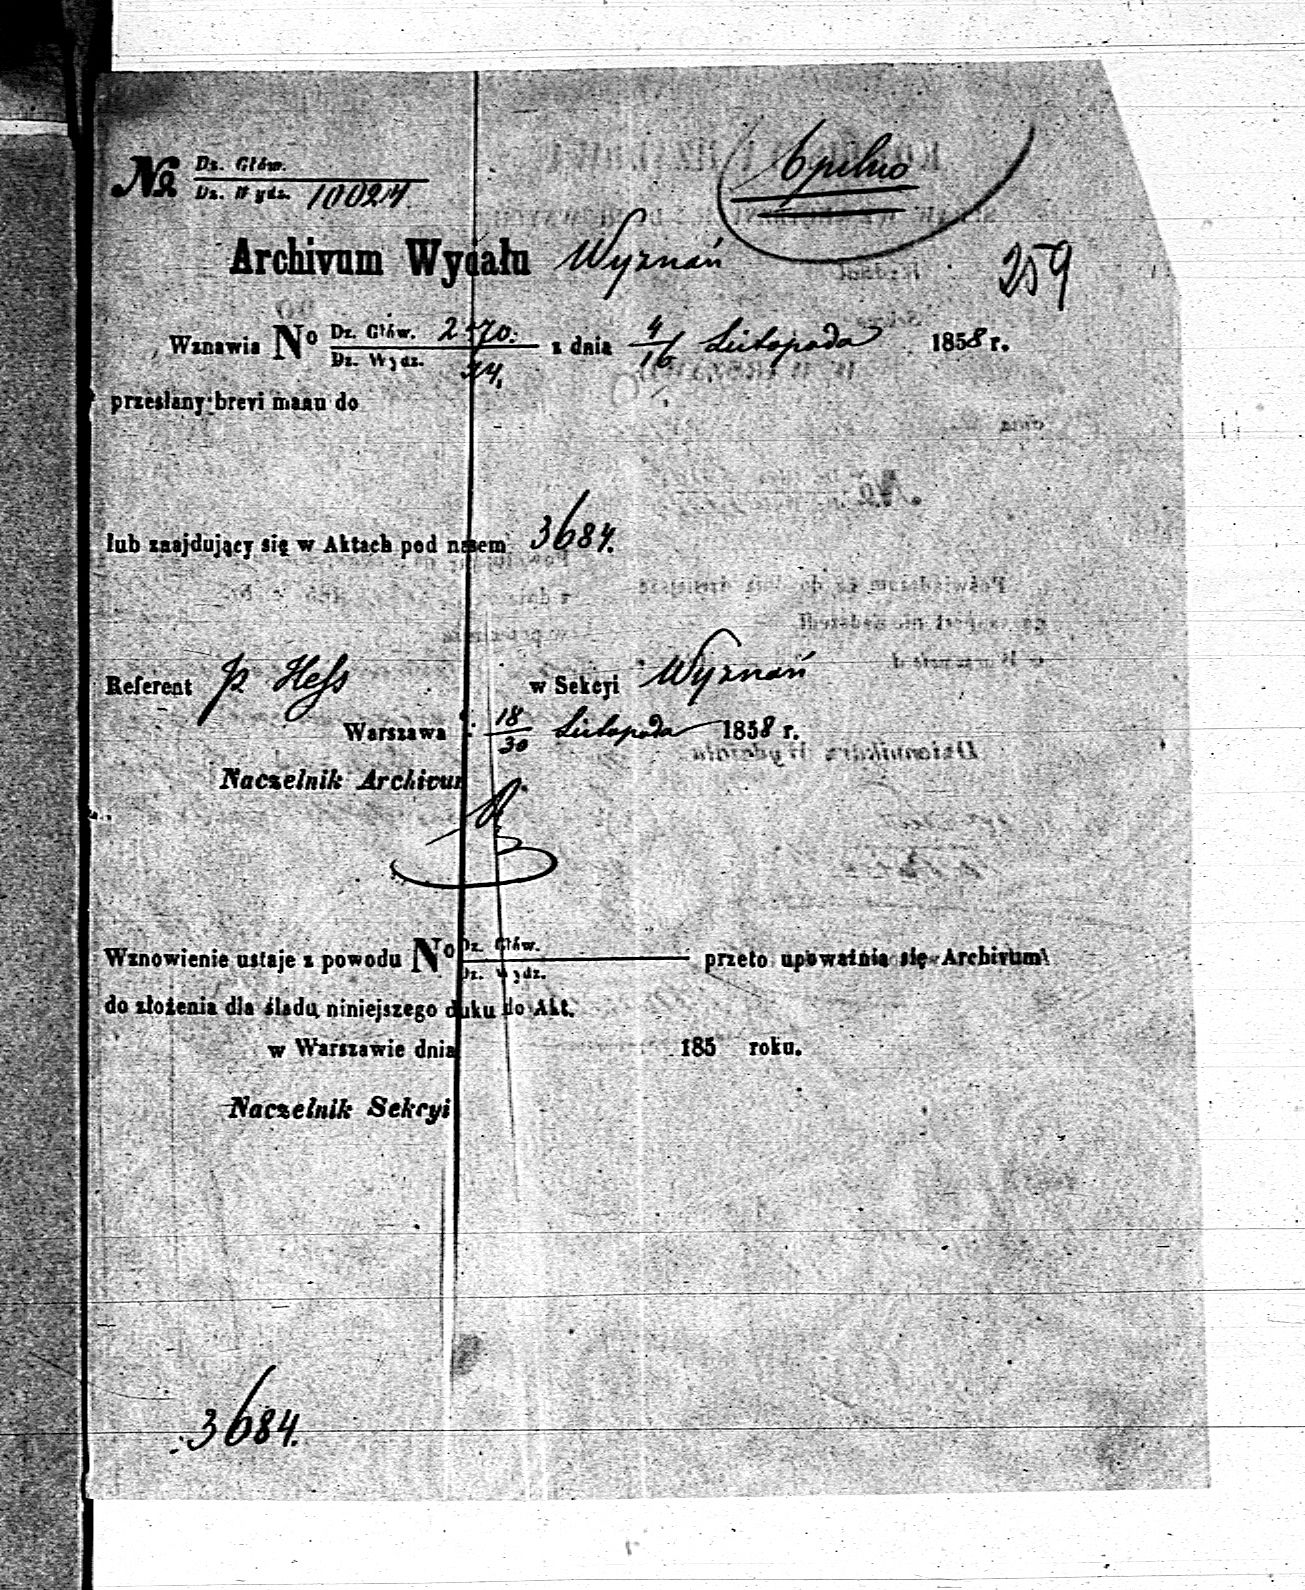 № Dz. Głów.
Dz. Wydz. 10024
Archivum Wydału Wyznań
259
Wznawia No Dz. Głów. 2470. z dnia 4/16 Listopada 1858 r.
Dz. Wydz. 14.
przesłany brevi manu do
lub znajdujący się w Aktach pod nrem 3684.
Referent P. Hess w Sekcyi Wyznań
Warszawa d. 18/30 Listopada 1858 r.
Naczelnik Archivum
Wznowienie ustaje z powodu No Dz. Głów. przeto upoważnia się Archivum
Dz. Wydz.
do złożenia dla śladu niniejszego druku do Akt.
w Warszawie dnia 185 roku.
Naczelnik Sekcyi
3684.